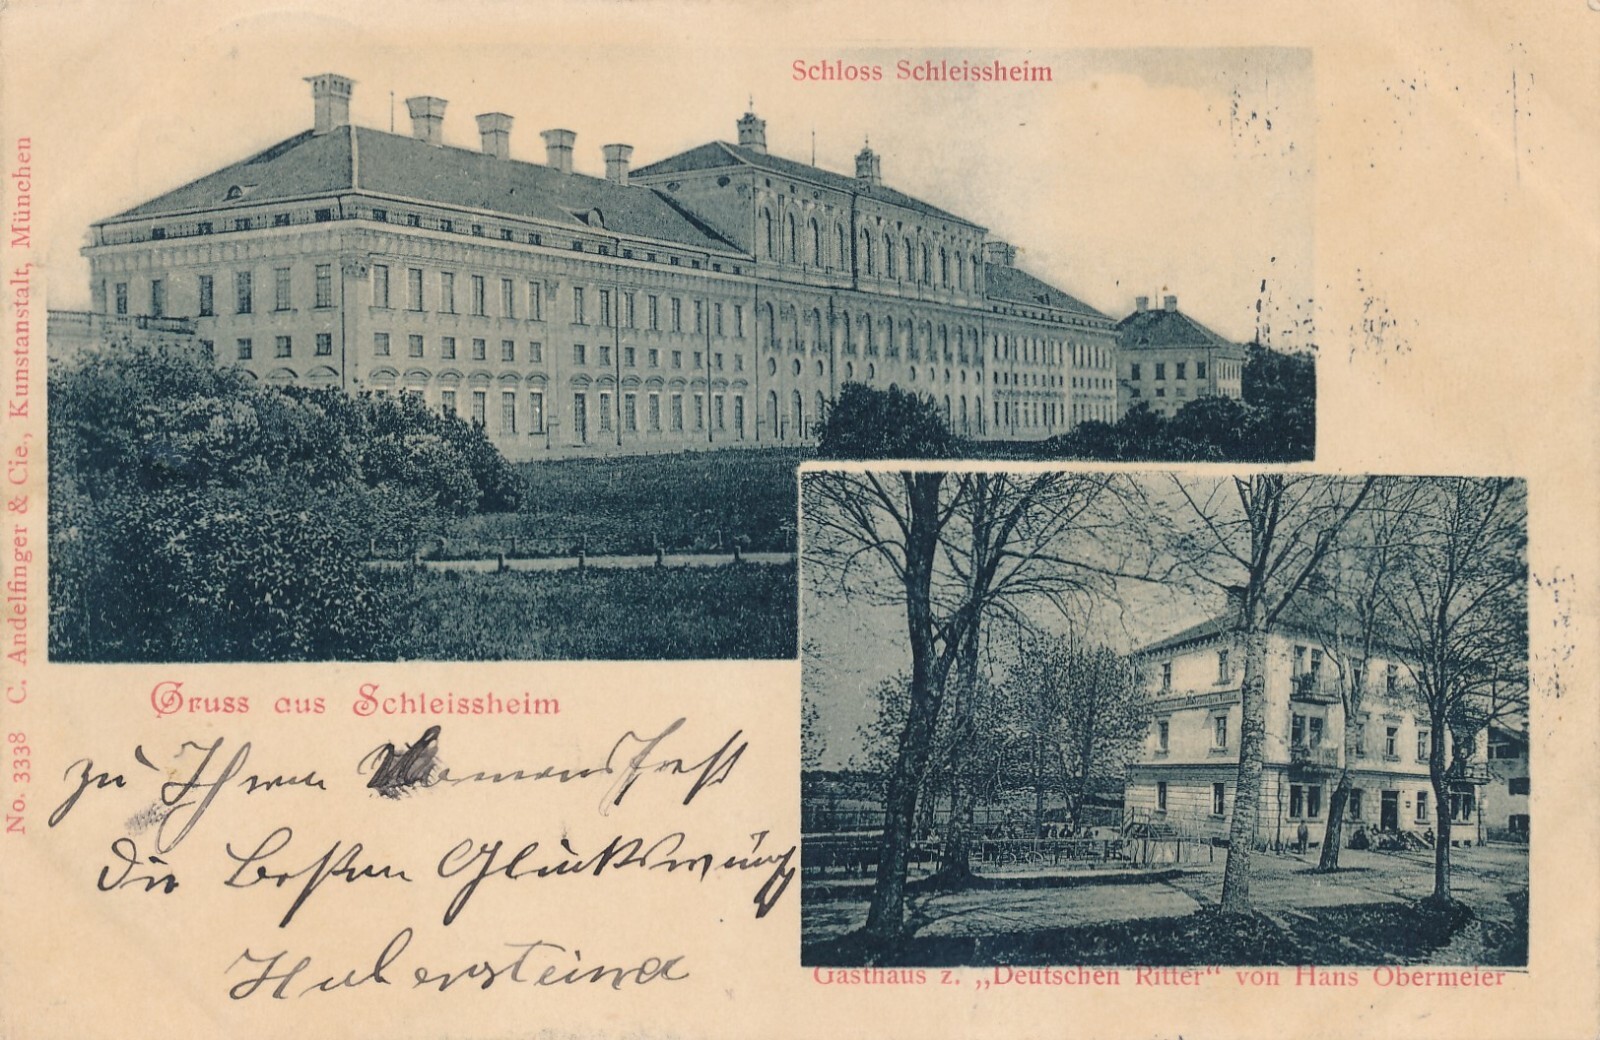 Schloss Schleissheim
No. 3338 C. Andelfinger & Cie., Kunstanstalt, München
Gruss aus Schleissheim
zu Ihrem Namensfest
die besten Glückswünsch
Habersteiner
Gasthaus z. „Deutschen Ritter“ von Hans Obermeier